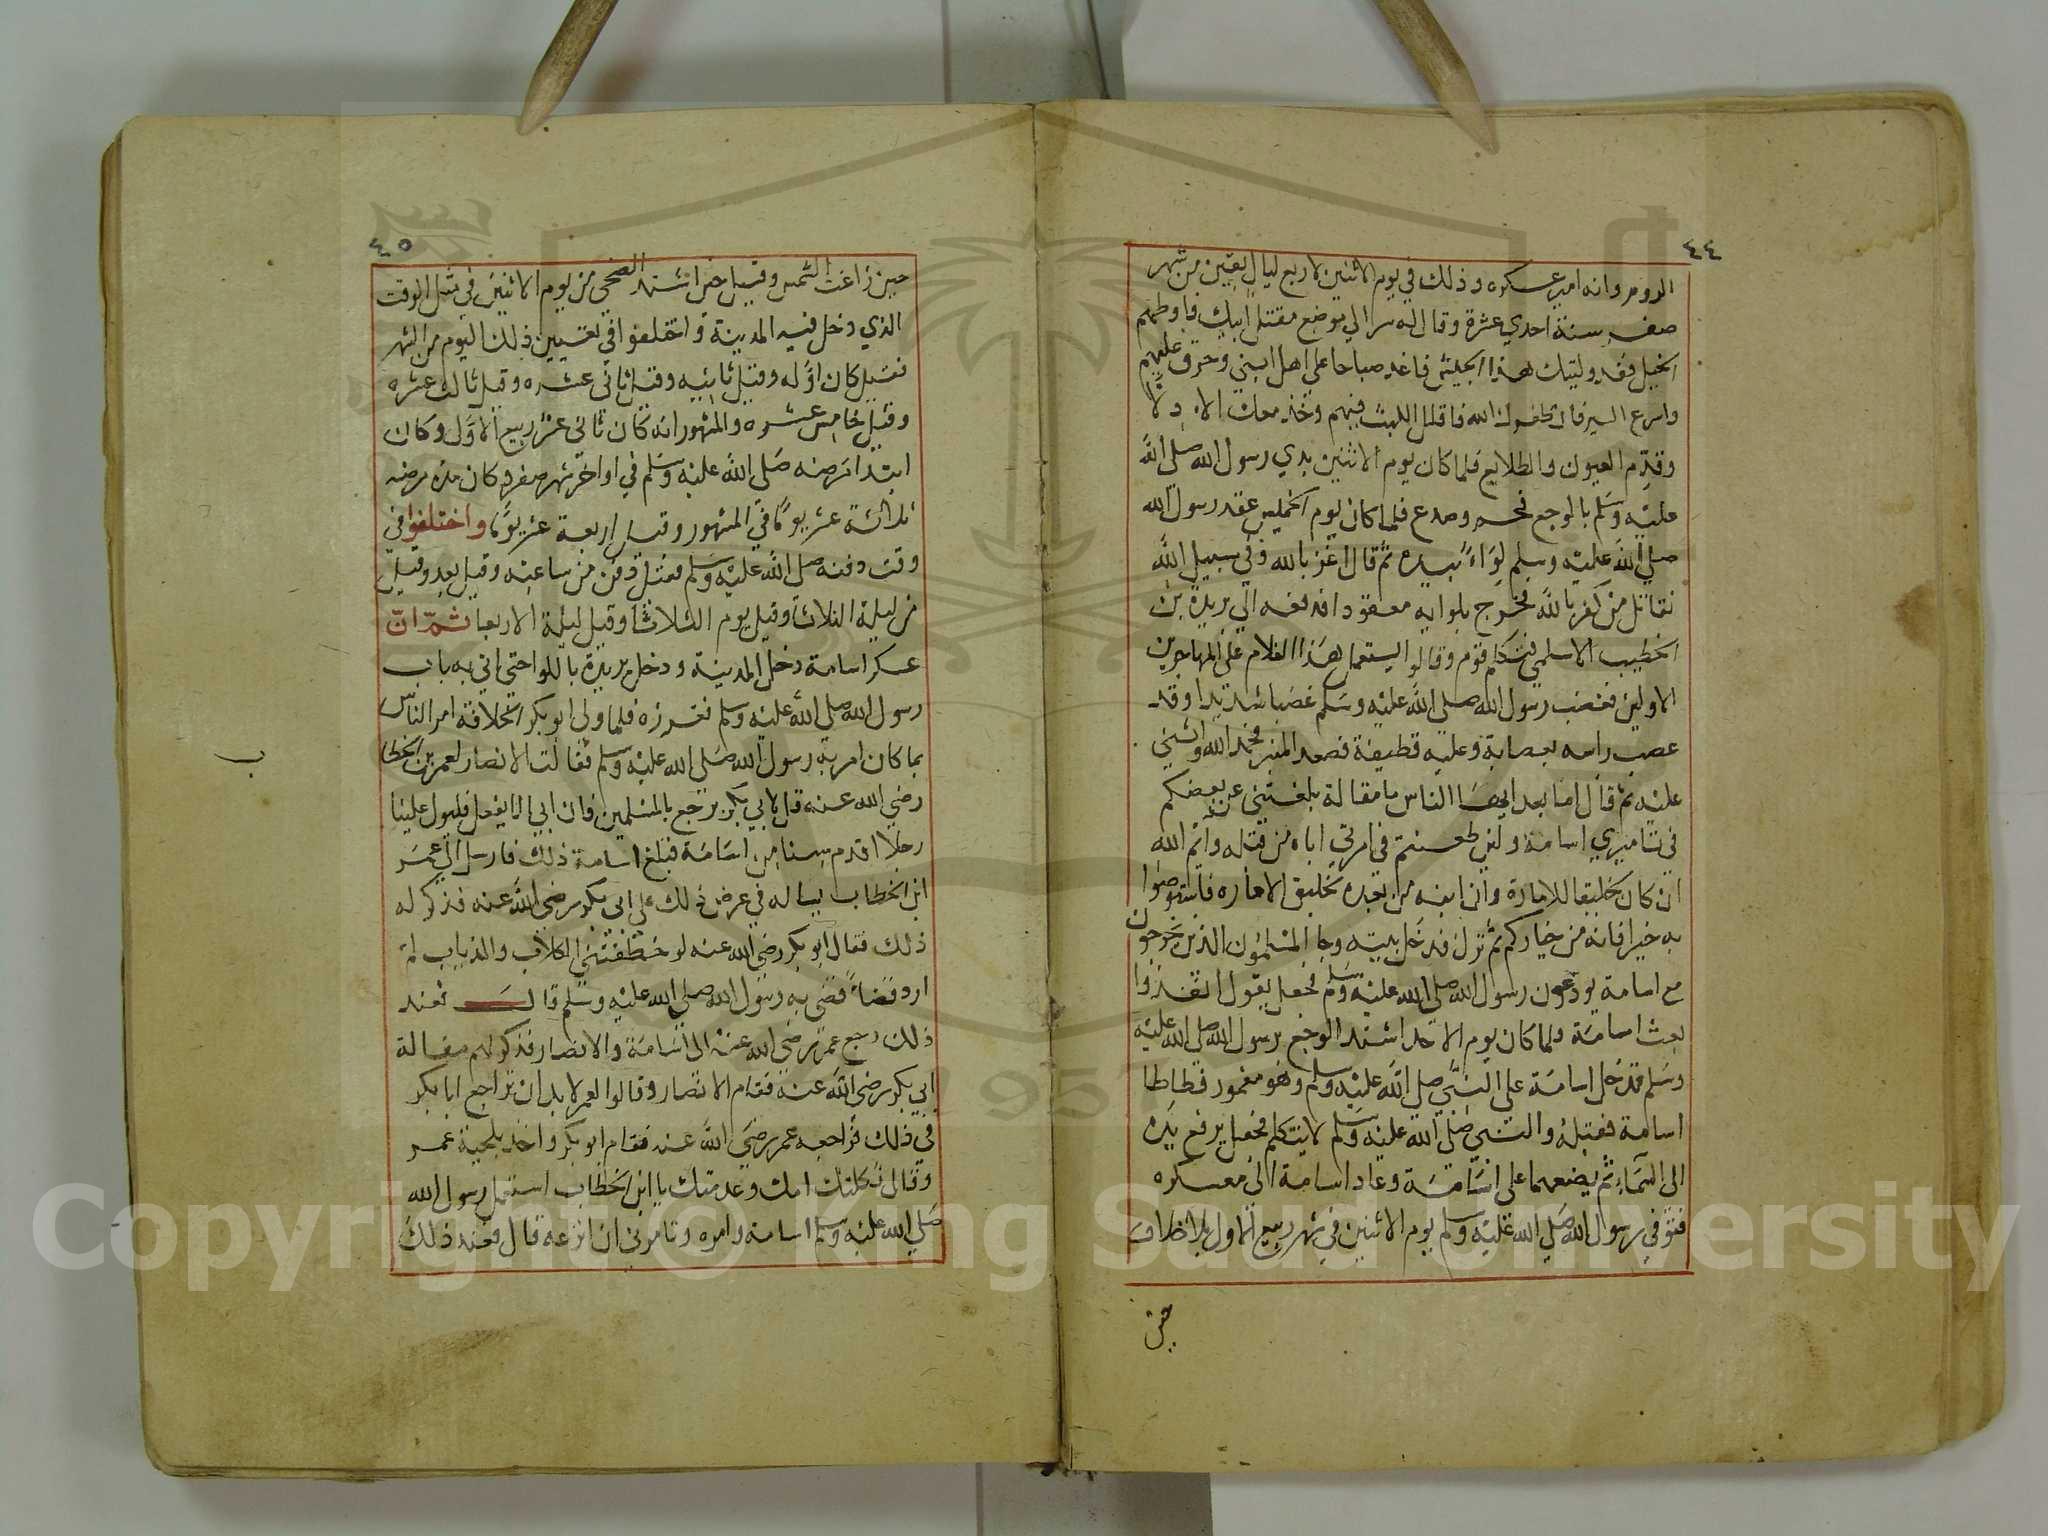 ٤٤
الروم وانه امير عسكره وذلك في يوم الاثنين لاربع ليال بقين من شهر
صفر سنة احدي عشرة وقال له سر الي موضع مقتل ابيك فاوطهم
الخيل فقد وليتك هذا الجيش فاغد صباحا علي اهل ابني وحرق عليهم
واسرع السير فان الله فاقلل اللبث فيهم وخذ معك الادلا
وقدم العيون والطلايع فلما كان يوم الاثنين بدي رسول الله صلي الله
عليه وسلم بالوجع فحم وصدع فلما كان يوم الخميس عقد رسول الله
صلي الله عليه وسلم لواء بيده ثم قال اغز بالله وفي سبيل الله
نقاتل من كفر بالله فخرج بلوايه معقودا فدفعه الي بريدة بن
الخطيب الاسلمي فتكلم قوم وقالوا ليستعمل هذا الغلام علي المهاجرين
الاولين فغضب رسول الله صلي الله عليه وسلم غضبا شديدا وقد
عصب راسه بعصابة وعليه قطيفة فصعد المنبر فحمد الله واثني
عليه ثم قال اما بعد ايها الناس ما مقالة بلغتني عن بعضكم
في تاميري اسامة ولين طعنتم في امرتي اباه من قبله وايم الله
ان كان خليقا للامارة وان ابنه من بعده لخليق الاماره فاستوصوا
به خيرا فانه من خياركم ثم نزل فدخل بيته وجا المسلمون الذين يخرجون
مع اسامة يودعون رسول الله صلي الله عليه وسلم فجعل يقول انفذوا
بعث اسامة ولما كان يوم الاحد اشتد الوجع برسول الله صلي الله عليه
وسلم فدخل اسامة علي النبي صلي الله عليه وسلم وهو مغمور فطاطا
اسامة فقبله والنبي صلي الله عليه وسلم لا يتكلم فجعل يرفع يده
الي السماء ثم يضعهما علي اسامة وعاد اسامة الي معسكره
فتوفي رسول الله صلي الله عليه وسلم يوم الاثنين في شهر ربيع الاول بلا خلاف
حين
٤٥
حين زاغت الشمس وقيل حين اشتد الضحي من يوم الاثنين في مثل الوقت
الذي دخل فيه المدينة واختلفوا في تعيين ذلك اليوم من الشهر
فقيل كان اوله وقيل ثانيه وقيل ثاني عشره وقيل ثالث عشره
وقيل خامس عشره والمشهور انه كان ثاني عشر ربيع الاول وكان
ابتدا مرضه صلي الله عليه وسلم في اواخر شهر صفر وكان مدة مرضه
ثلاثة عشر يوما في المشهور وقيل اربعة عشر يوما واختلفوا في
وقت دفنه صلي الله عليه وسلم فقيل دفن من ساعته وقيل بعد وقيل
من ليلة الثلاثا وقيل يوم الثلاثا وقيل ليلة الاربعا ثم ان
عسكر اسامة دخل المدينة ودخل بريدة باللوا حتي اتي به باب
رسول الله صلي الله عليه وسلم فغرزه فلما ولي ابو بكر الخلافة امر الناس
بما كان امر به رسول الله صلي الله عليه وسلم فقالت الانصار لعمر بن الخطا
ب
رضي الله عنه قل لابي بكر يرجع بالمسلمين فان ابي الا يفعل فليول علينا
رجلا اقدم سنا من اسامة فبلغ اسامة ذلك فارسل الي عمر
ابن الخطاب يساله في عرض ذلك علي ابي بكر رضي الله عنه فذكر له
ذلك فقال ابو بكر رضي الله عنه لو خطفتني الكلاب والذياب لم
ارد قضاء قضي به رسول الله صلي الله عليه وسلم قال فعند
ذلك رجع عمر رضي الله عنه الي اسامة والانصار فذكر لهم مقالة
ابي بكر رضي الله عنه فقام الانصار وقالوا لعمر لا بد ان تراجع ابا بكر
في ذلك فراجعه عمر رضي الله عنه فقام ابو بكر واخذ بلحية عمر
وقال ثكلتك امك وعدمتك يا ابن الخطاب استعمل رسول الله
صلي الله عليه وسلم اسامة وامره وتامرني ان انزعه قال فعند ذلك
Copyright © King Saud University